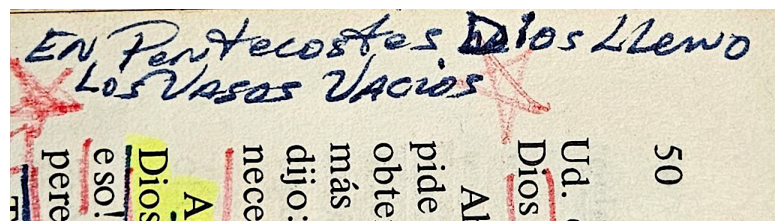 EN Pentecostes Dios LLeno
Los VASOS VACIOS
50
Ud.
Dios
Al
pide
obte
más
dijo:
nece
A
Dios
eso!
pere